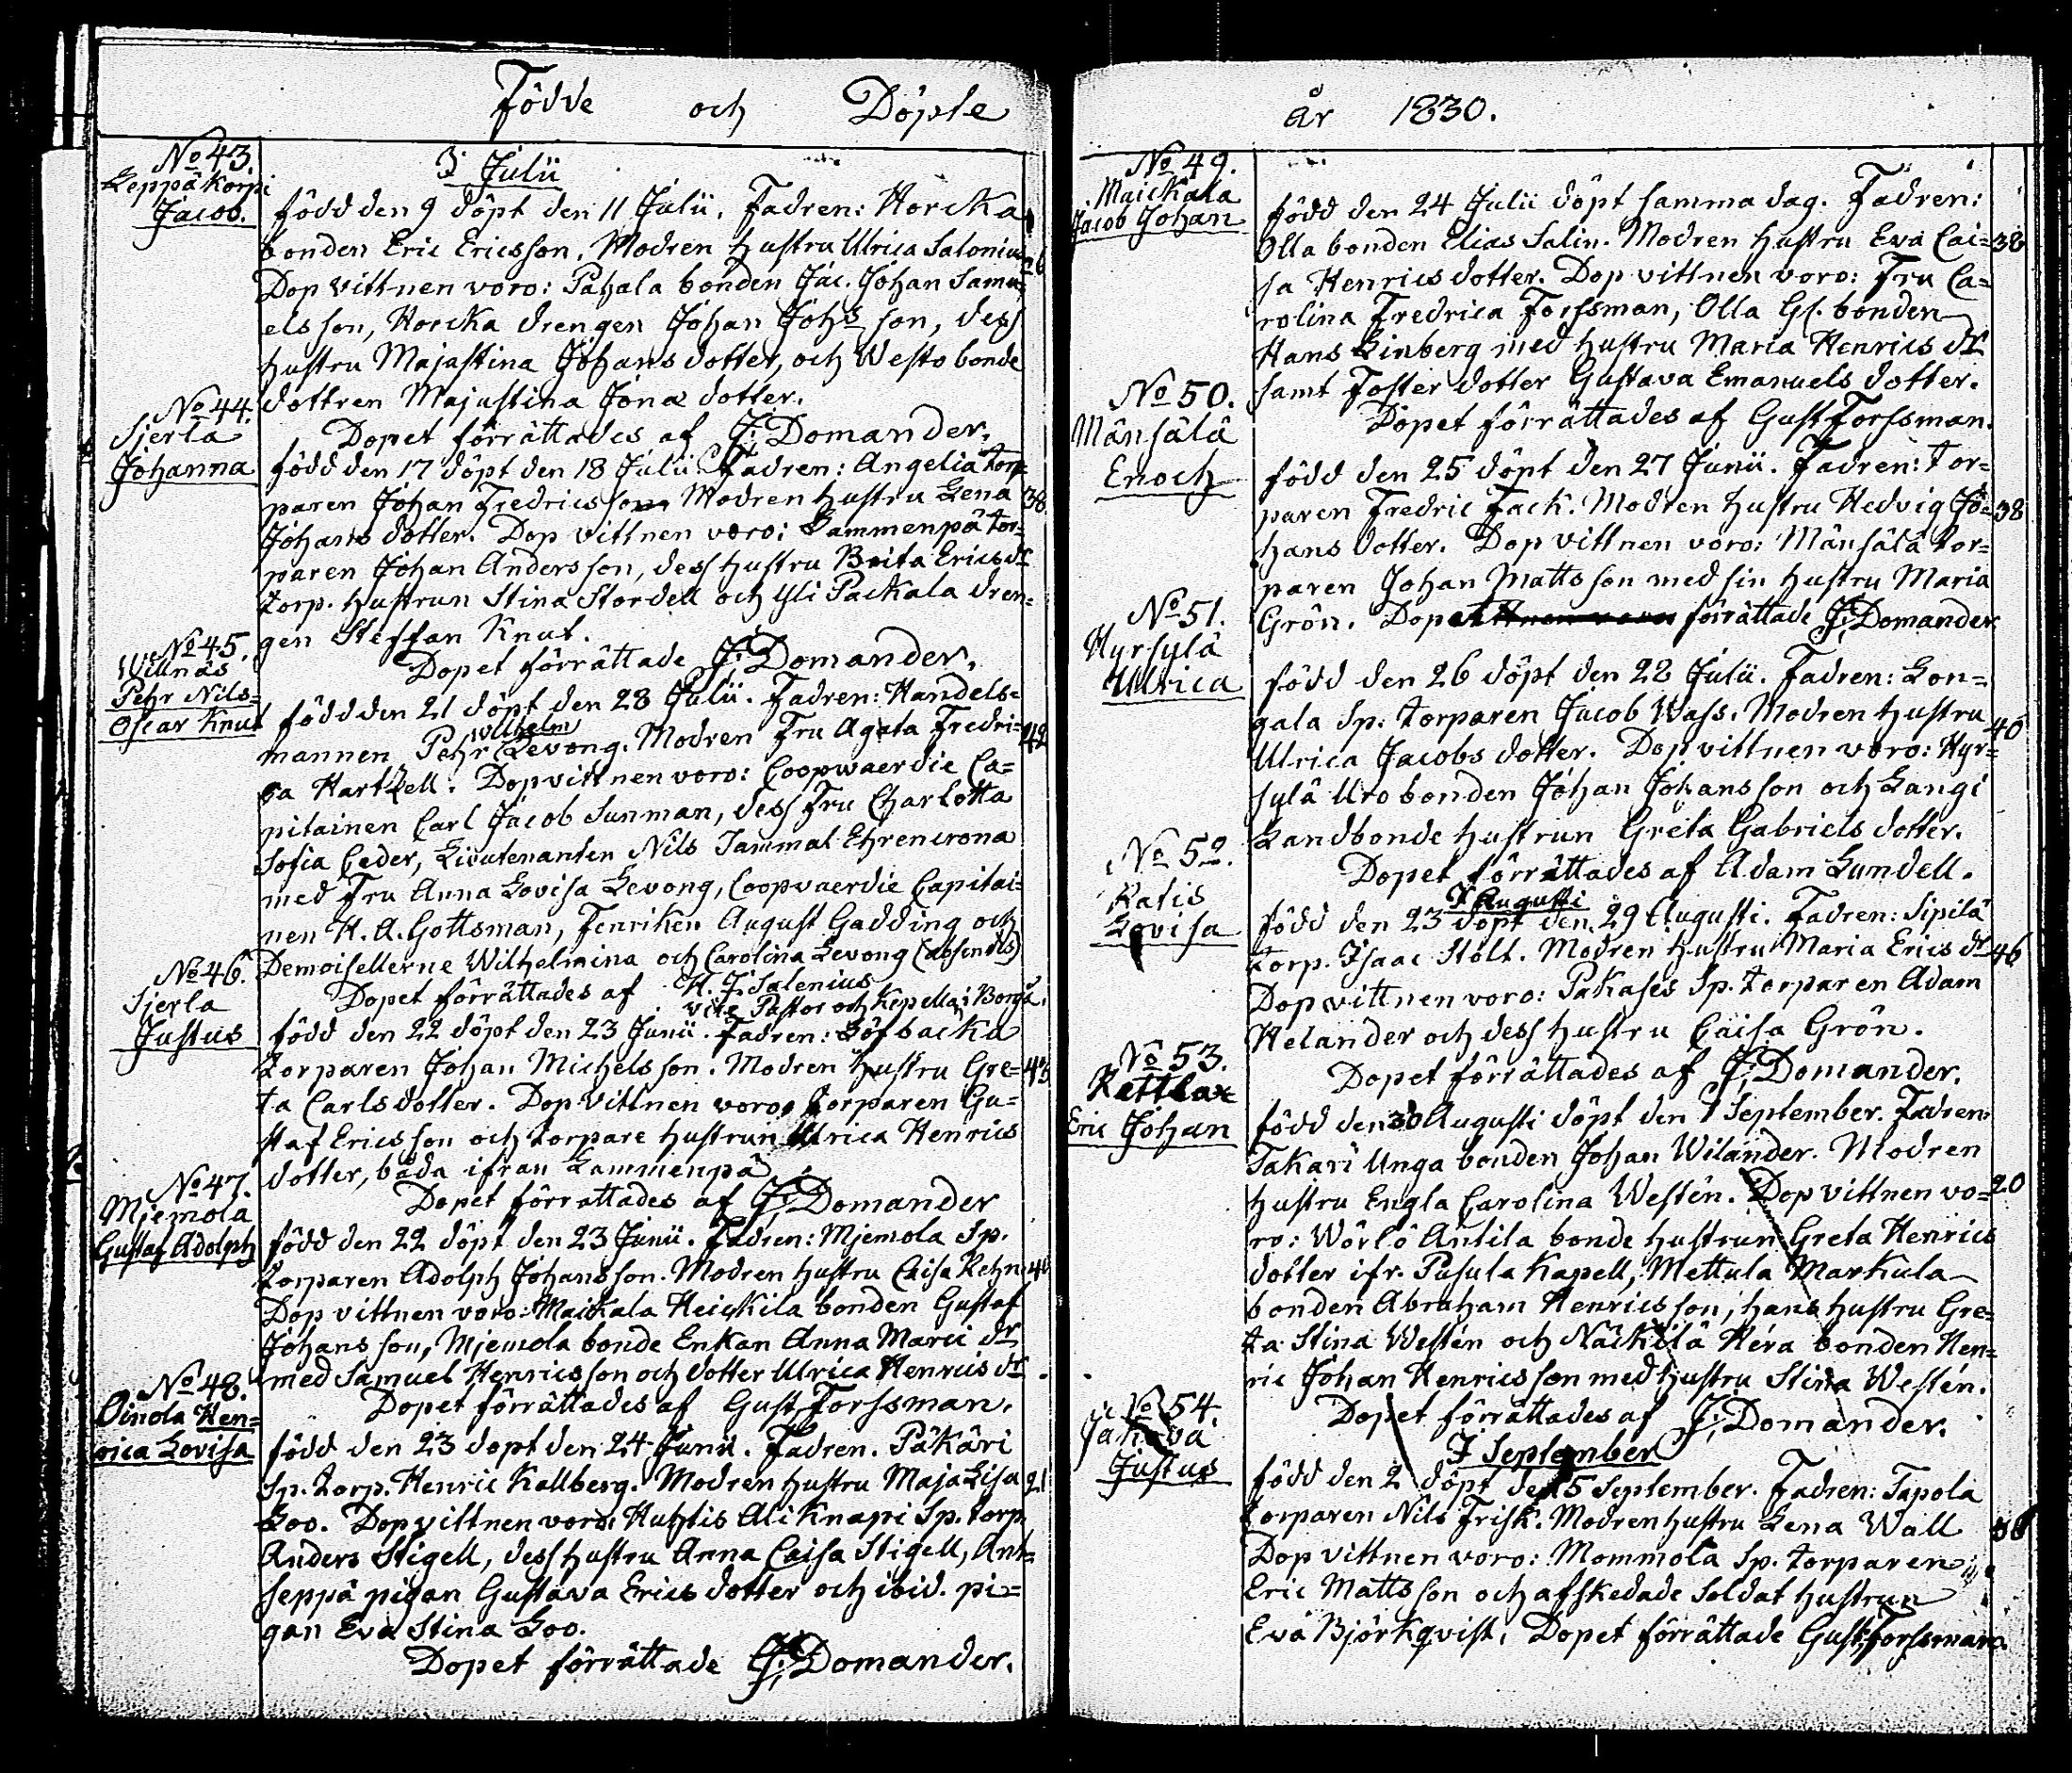 Födde och Döpte
No 43.
Leppäkorpi
Jacob.
J Julii
född den 9 döpt den 11 Julii. Fadren: Horcka
bonden Eric Ericsson. Modren hustru Ulrica Salonius 26
Dop vittnen voro: Pahala bonden Jac. Johan Samu-
elsson, Horcka drengen Johan Johs son, dess
hustru Majastina Johans dotter, och Westo bonde
dottren Majustina Jonae dotter.
Dopet förrättades af J: Domander.
No 44.
Sjerla
Johanna
född den 17 döpt den 18 Julii Fadren: Angelia torp-
paren Johan Fredricsson Modren hustru Lena 38
Johans dotter. Dop vittnen voro: Lammenpä tor-
paren Johan Andersson, dess hustru Brita Erics dr
torp. hustrun Stina Stordell och Yli Packala dren-
gen Steffan Knut.
Dopet förrättade J: Domander.
No 45.
Willnäs
Pehr Nils-
Oscar Knut
född den 21 döpt den 28 Julii. Fadren: Handels-
mannen Pehr Wilhelm Levong. Modren Fru Agata Fredri- 42
ca Hartzell. Dop vittnen voro: Coopwaerdie Ca-
pitainen Carl Jacob Sunman, dess Fru Charlotta
Sofia Ceder, Lieutenanten Nils Tammal Ehrencrona
med Fru Anna Lovisa Levong, Coopvaerdie Capitai-
nen H. A. Gottsman, Fenriken August Gadding och
Demoisellerne Wilhelmina och Carolina Levong (absentes)
Dopet förrättades af H. J. Salenius
vice Pastor och Kapella i Borgå.
No 46.
Sjerla
Justus
född den 22 döpt den 23 Junii. Fadren: Löfbacka
torparen Johan Michelsson. Modren hustru Gre- 43
ta Carlsdotter. Dop vittnen voro, torparen Gu-
staf Ericsson och torpare hustrun Ulrica Henrics
dotter, båda ifrån Lammenpä
Dopet förrattades af J: Domander
No 47.
Mjemola
Gustaf Adolph
född den 22 döpt den 23 Junii. Fadren: Mjemola Sp.
torparen Adolph Johansson. Modren hustru Caisa Rehn
Dop vittnen voro: Maickala Heickila bonden Gustaf
Johansson, Mjemola bonde Enkan Anna Marci dr
med Samuel Henricsson och dotter Ulrica Henrics dr.
Dopet förrättades af Gust Forssman.
No 48.
Oinola Hen-
rica Lovisa
född den 23 döpt den 24 Junii. Fadren. Päkäri
Sp. torp. Henric Kallberg. Modren hustru Maja Lisa 21
Loo. Dop vittnen voro: Huhtis Ali Knapi Sp. torp
Anders Stigell, dess hustru Anna Caisa Stigell, Ant-
seppä pigan Gustava Erics dotter och ibid. pi-
gan Eva Stina Loo.
Dopet förrättade J: Domander.
år 1830.
No 49.
Maickala
Jacob Johan
född den 24 Julii döpt samma dag. Fadren:
Olla bonden Elias Salin. Modren hustru Eva Cai- 38
sa Henrics dotter. Dop vittnen voro: Fru Ca-
rolina Fredrica Forssman, Olla Gl. bonden
Hans Linberg med hustru Maria Henrics dr
samt Foster dotter Gustava Emanuels dotter.
Dopet förrättades af Gust Forssman.
No 50.
Mänsälä
Enoch
född den 25 döpt den 27 Junii. Fadren: tor-
paren Fredric Fack. Modren hustru Hedvig Jo- 38
hans dotter. Dop vittnen voro: Mänsälä tor-
paren Johan Mattsson med sin hustru Maria
Grön. Dopet förrättade J: Domander
No 51.
Hyrsylä
Ulrica
född den 26 döpt den 28 Julii. Fadren: Lon-
gala Sp. torparen Jacob Wass. Modren hustru 40
Ulrica Jacobs dotter. Dop vittnen voro: Hyr-
sylä Uro bonden Johan Johansson och Langi
Landbonde hustrun Greta Gabriels dotter.
Dopet förrättades af Adam Lundell.
No 52.
Ratis
Lovisa
J Augusti
född den 23 döpt den 29 Augusti. Fadren: Sipilä
torp. Isaac Stolt. Modren hustru Maria Erics dr 46
Dop vittnen voro: Pakases Sp. torparen Adam
Helander och dess hustru Caisa Grön.
Dopet förrättades af J: Domander.
No 53.
Kettlax
Eric Johan
född den 30 Augusti döpt den 1 September. Fadren:
Takari Unga bonden Johan Wilander. Modren
hustru Engla Carolina Westén. Dop vittnen vo- 20
ro: Wörlö Antila bonde hustrun Greta Henrics
dotter ifr. Pusula Kapell, Mettula Markula
bonden Abraham Henricsson, hans hustru Gre-
ta Stina Westén och Näckilä Héra bonden Hen-
ric Johan Henricsson med hustru Stina Westén.
Dopet förrättades af J: Domander.
No 54.
Justus
J September
född den 2 döpt den 5 September. Fadren: Tapola
torparen Nils Frisk. Modren hustru Lena Wall
Dop vittnen voro: Mommola Sp. torparen
Eric Mattsson och afskedade soldat hustrun
Eva Björkqvist. Dopet förrättade Gust. Forssman.